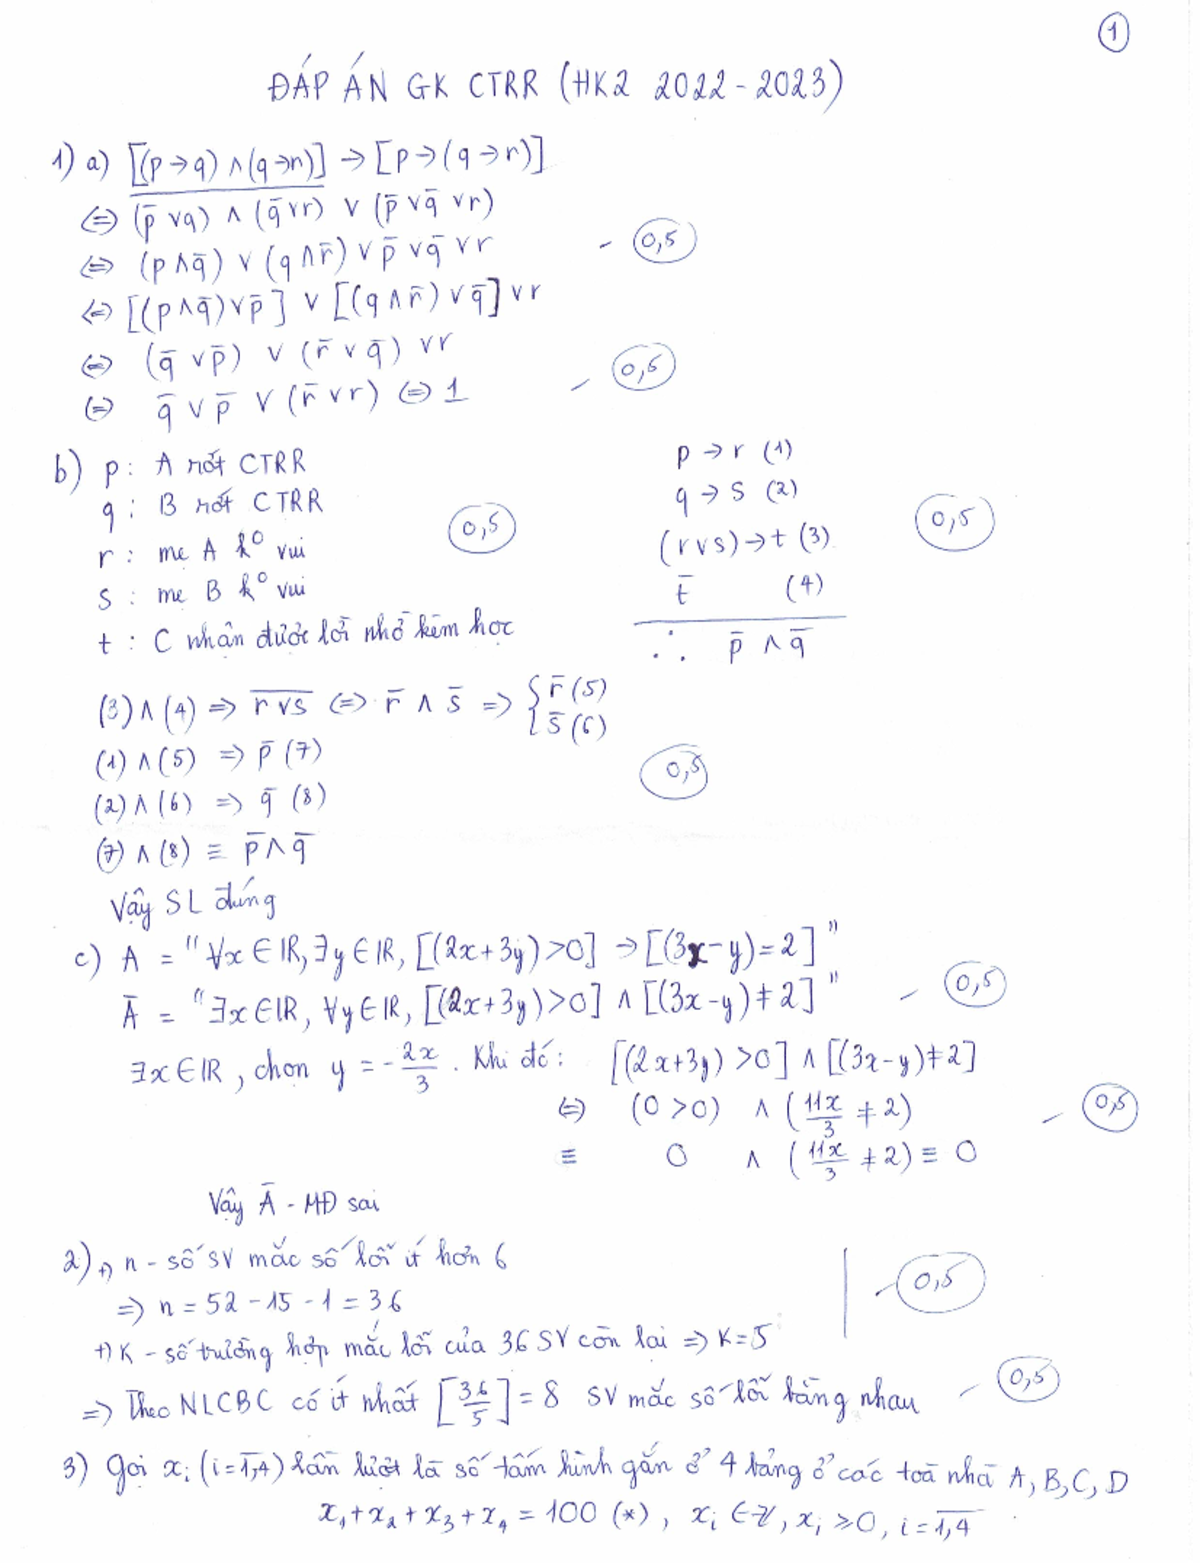 ①
ĐÁP ÁN GK CTRR (HK2 2022-2023)
1) a) [(p→q) ∧ (q→r)] → [p→(q→r)]
⇔ (p̄ ∨ q) ∧ (q̄ ∨ r) ∨ (p̄ ∨ q̄ ∨ r)
⇔ (p ∧ q̄) ∨ (q ∧ r̄) ∨ p̄ ∨ q̄ ∨ r - 0,5
⇔ [(p ∧ q̄) ∨ p̄] ∨ [(q ∧ r̄) ∨ q̄] ∨ r
⇔ (q̄ ∨ p̄) ∨ (r̄ ∨ q̄) ∨ r
⇔ q̄ ∨ p̄ ∨ (r̄ ∨ r) ⇔ 1 - 0,5
b) p : A rớt CTRR
q : B rớt CTRR
r : mẹ A k° vui
s : mẹ B k° vui
t : C nhận được lời nhờ kèm học
0,5
p → r (1)
q → s (2)
(r ∨ s) → t (3)
t̄ (4)
∴ p̄ ∧ q̄
0,5
(3) ∧ (4) ⇒ \overline{r ∨ s} ⇔ r̄ ∧ s̄ ⇒ { r̄ (5)
s̄ (6)
(1) ∧ (5) ⇒ p̄ (7)
(2) ∧ (6) ⇒ q̄ (8)
0,5
(7) ∧ (8) ≡ p̄ ∧ q̄
Vậy SL đúng
c) A = "∀x ∈ IR, ∃y ∈ IR, [(2x+3y) > 0] → [(3x-y) = 2]"
Ā = "∃x ∈ IR, ∀y ∈ IR, [(2x+3y) > 0] ∧ [(3x-y) ≠ 2]" - 0,5
∃x ∈ IR, chọn y = -2x/3. Khi đó: [(2x+3y) > 0] ∧ [(3x-y) ≠ 2]
⇔ (0 > 0) ∧ (11x/3 ≠ 2) - 0,5
≡ 0 ∧ (11x/3 ≠ 2) ≡ 0
Vậy Ā - MĐ sai
2) +) n - số SV mắc số lỗi ít hơn 6
⇒ n = 52 - 15 - 1 = 36 - 0,5
+) K - số trường hợp mắc lỗi của 36 SV còn lại ⇒ K = 5
⇒ Theo NLCBC có ít nhất [36/5] = 8 SV mắc số lỗi bằng nhau - 0,5
3) Gọi xᵢ (i = \overline{1,4}) lần lượt là số tấm hình gắn ở 4 bảng ở các toà nhà A, B, C, D
x₁ + x₂ + x₃ + x₄ = 100 (*), xᵢ ∈ Z, xᵢ ≥ 0, i = \overline{1,4}